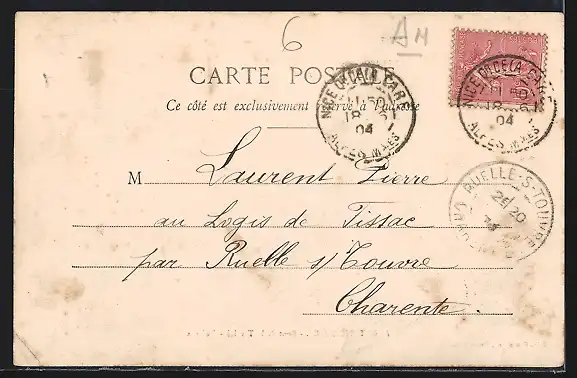 6
CARTE POSTALE
Ce côté est exclusivement réservé à l'adresse
NICE Pl. DE LA GARE
18 04
ALPES MMES
NICE Pl. DE LA GARE
18 04
ALPES MMES
RUELLE-S-TOUVRE
M Laurent Pierre
au Logis de Tissac
par Ruelle s/ Touvre
Charente.